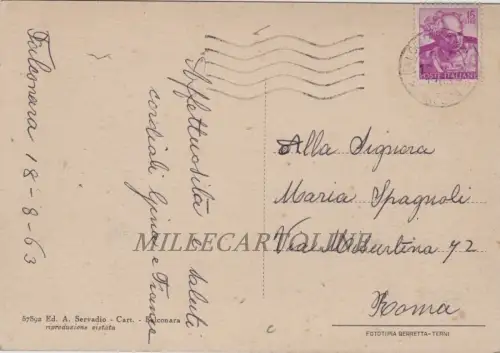 Falconara 18-8-63
Affettuosità e saluti
cordiali Gina e Franca
15
POSTE ITALIANE
Alla Signora
Maria Spagnoli
Via Tiburtina 72
Roma
MILLECARTOLINE
87892 Ed. A. Servadio - Cart. - Falconara
riproduzione vietata
FOTOTIPIA BERRETTA-TERNI